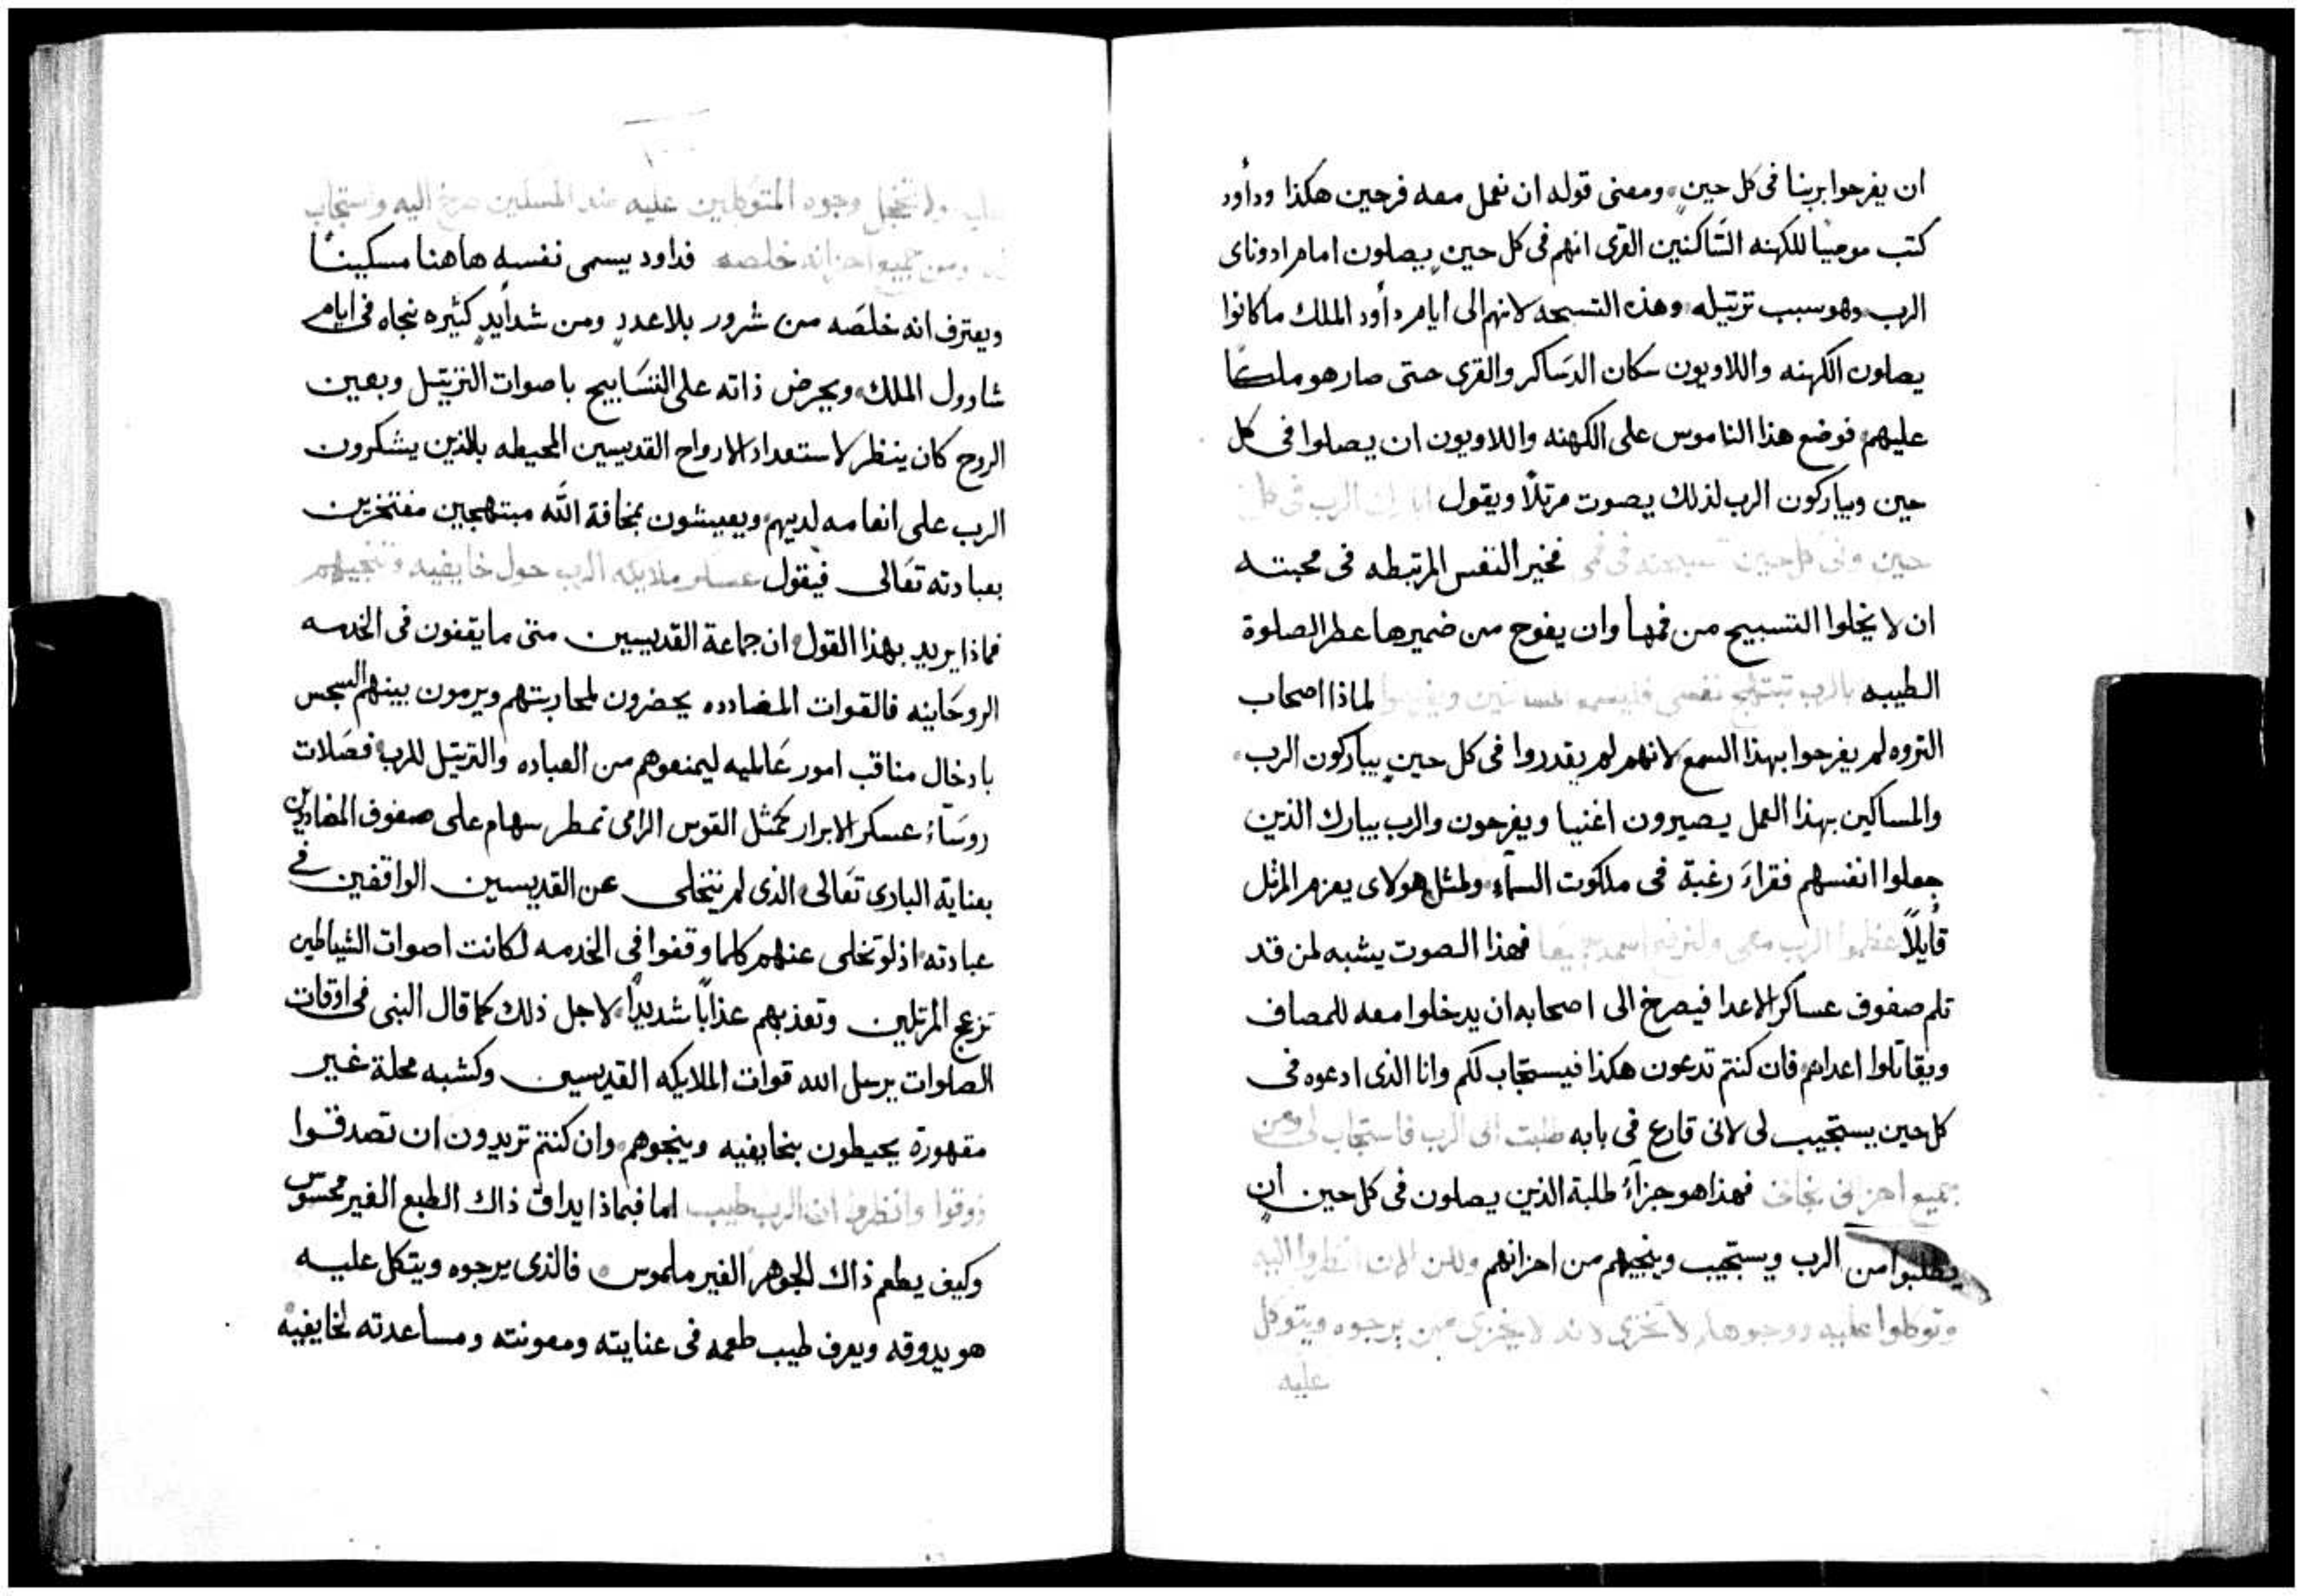 ان يفرحوا بربنا فى كل حينٍ ومعنى قوله ان نعمل معه فرحين هكذا ودأود
كتب موميا للكهنه السَّاكنين القرى انهم فى كل حينٍ يصلون امام ادوناى
الرب وهو سبب ترتيله وهذه التسبحه لانهم الى ايام دأود الملك ما كانوا
يصلون الكهنه واللاويون سكان الدسَاكر والقرى حتى صار هو ملكًا
عليهم فوضع هذا الناموس على الكهنه واللاويون ان يصلوا فى كل
حين ويباركون الرب لذلك يصوت مرتلاً ويقول ابارك الرب فى كل
حين وفى كل حين تسبحته فى فمى فخير النفس المرتبطه فى محبته
ان لا يخلوا التسبيح من فمها وان يفوح من ضميرها عطر الصلوة
الطيبه بالرب تبتهج نفسى فليسمع المساكين ويفرحوا لماذا اصحاب
التروه لم يفرحوا بهذا السمع لانهم لم يقدروا فى كل حينٍ يباركون الرب
والمساكين بهذا العمل يصيرون اغنيا ويفرحون والرب يبارك الذين
جعلوا انفسهم فقراءَ رغبة فى ملكوت السمآء ولمثل هولاى يعزم المرتل
قأيلاً عظموا الرب معى ولنرفع اسمه جميعًا فهذا الصوت يشبه لمن قد
تلم صفوف عساكر الاعدا فيصرخ الى اصحابه ان يدخلوا معه للمصاف
ويقاتلوا اعداهم فان كنتم تدعون هكذا فيستجاب لكم وانا الذى ادعوه فى
كل حين يستجيب لى لانى قارع فى بابه طلبت الى الرب فاستجاب لى ومن
جميع احزانى نجانى فهذا هو جزآءُ طلبة الذين يصلون فى كل حين ان
يطلبوا من الرب ويستجيب وينجيهم من احزانهم ولكن الان انظروا اليه
وتوكلوا عليه ووجوهكم لا تخزى لانه لا يخزى من يرجوه ويتوكل
عليه
عليه ولا تخجل وجوه المتوكلين عليه هذا المسكين صرخ اليه واستجاب
له ومن جميع احزانه خلصه فداود يسمى نفسه هاهنا مسكينًا
ويعترف انه خلصَه من شرور بلا عددٍ ومن شدأيدٍ كثيره نجاه فى ايام
شاوول الملك ويحرض ذاته على التسَابيح باصوات الترتيل وبعين
الروح كان ينظر لاستعداد الارواح القديسين المحيطه بالذين يشكرون
الرب على انعامه لديهم ويعيشون بمخافة الله مبتهجين مفتخرين
بعبادته تعَالى فيقول عسكر ملايكه الرب حول خايفيه وتنجيهم
فماذا يريد بهذا القول ان جماعة القديسين متى ما يقفون فى الخدمه
الروحَانيه فالقوات المضادده يحضرون لمحاربتهم ويرمون بينهم السجس
بادخال مناقب امور عَالميه ليمنعوهم من العباده والترتيل للرب فصَلات
روسَآءُ عسكر الابرار كمثل القوس الرامى تمطر سهام على صفوف المضاديين
بعناية البارى تعَالى الذى لم يتخلى عن القديسين الواقفين فى
عبادته اذ لو تخلى عنهم كلما وقفوا فى الخدمه لكانت اصوات الشياطين
تزعج المرتلين وتعذبهم عذابًا شديدًا لاجل ذلك كما قال النبى فى اوقات
الصلوات يرسل الله قوات الملايكه القديسين وكشبه محلة غير
مقهورة يحيطون بخايفيه وينجوهم وان كنتم تريدون ان تصدقوا
ذوقوا وانظروا ان الرب طيب اما فبماذا يداق ذاك الطبع الغير محسوس
وكيف يطعم ذاك الجوهر الغير ملموس فالذى يرجوه ويتكل عليه
هو يدوقه ويعرف طيب طعمه فى عنايته ومعونته ومساعدته لخايفيه